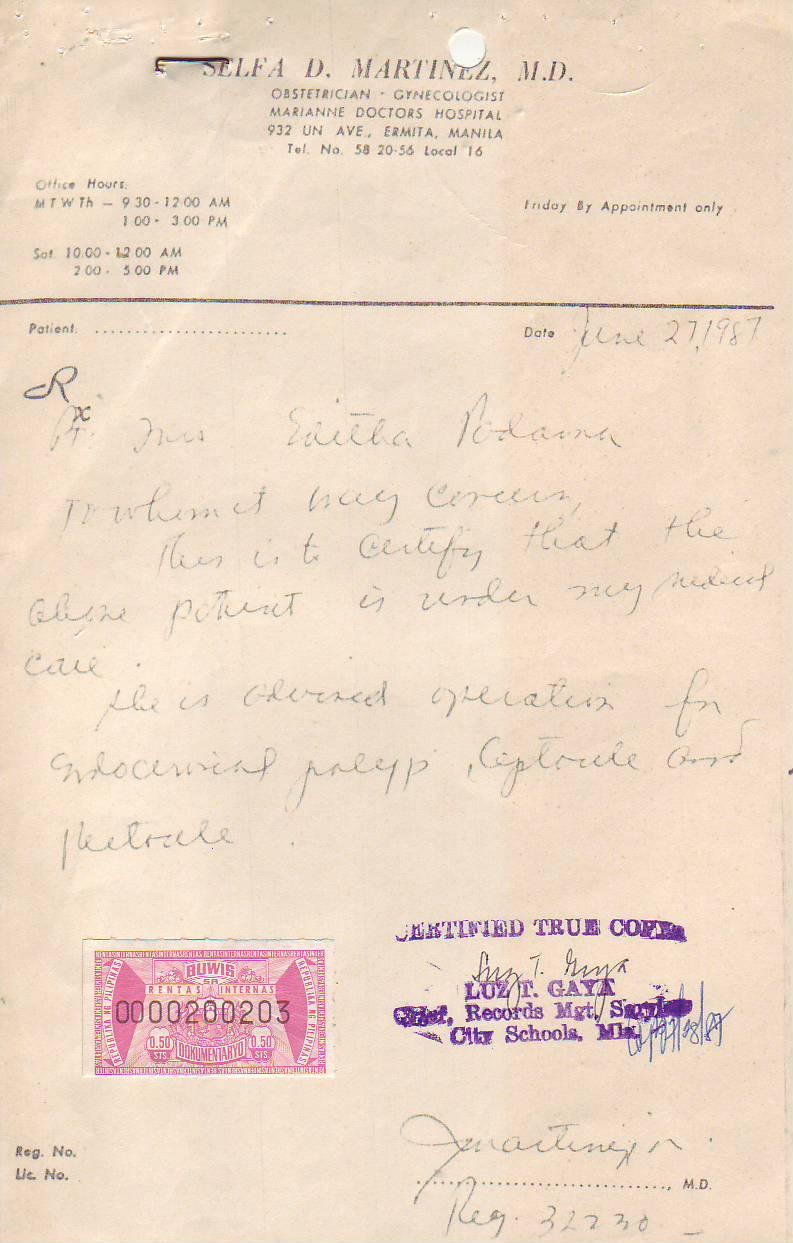 SELFA D. MARTINEZ, M.D.
OBSTETRICIAN - GYNECOLOGIST
MARIANNE DOCTORS HOSPITAL
932 UN AVE., ERMITA, MANILA
Tel. No. 58 20-56 Local 16
Office Hours:
M T W Th — 9 30 - 12 00 AM
1 00 - 3 00 PM
Friday By Appointment only
Sat. 10.00 - 12 00 AM
2 00 - 5 00 PM
Patient. ........................ Date June 27, 1987
Rx
Pt. Mrs Editha
To whom it may concern,
This is to certify that the
above patient is under my medical
care.
She is advised operation for
endocervical polyp, Cystocele and
Rectocele.
CERTIFIED TRUE COPY
Luz T. Gaya
LUZ T. GAYA
Chief, Records Mgt.
City Schools, Mla.
RENTAS INTERNAS
REPUBLIKA NG PILIPINAS
BUWIS
SA
RENTAS INTERNAS
REPUBLIKA NG PILIPINAS
0000200203
0.50 STS
DOKUMENTARYO
0.50 STS
Reg. No.
Lic. No.
............................., M.D.
Reg. 32230